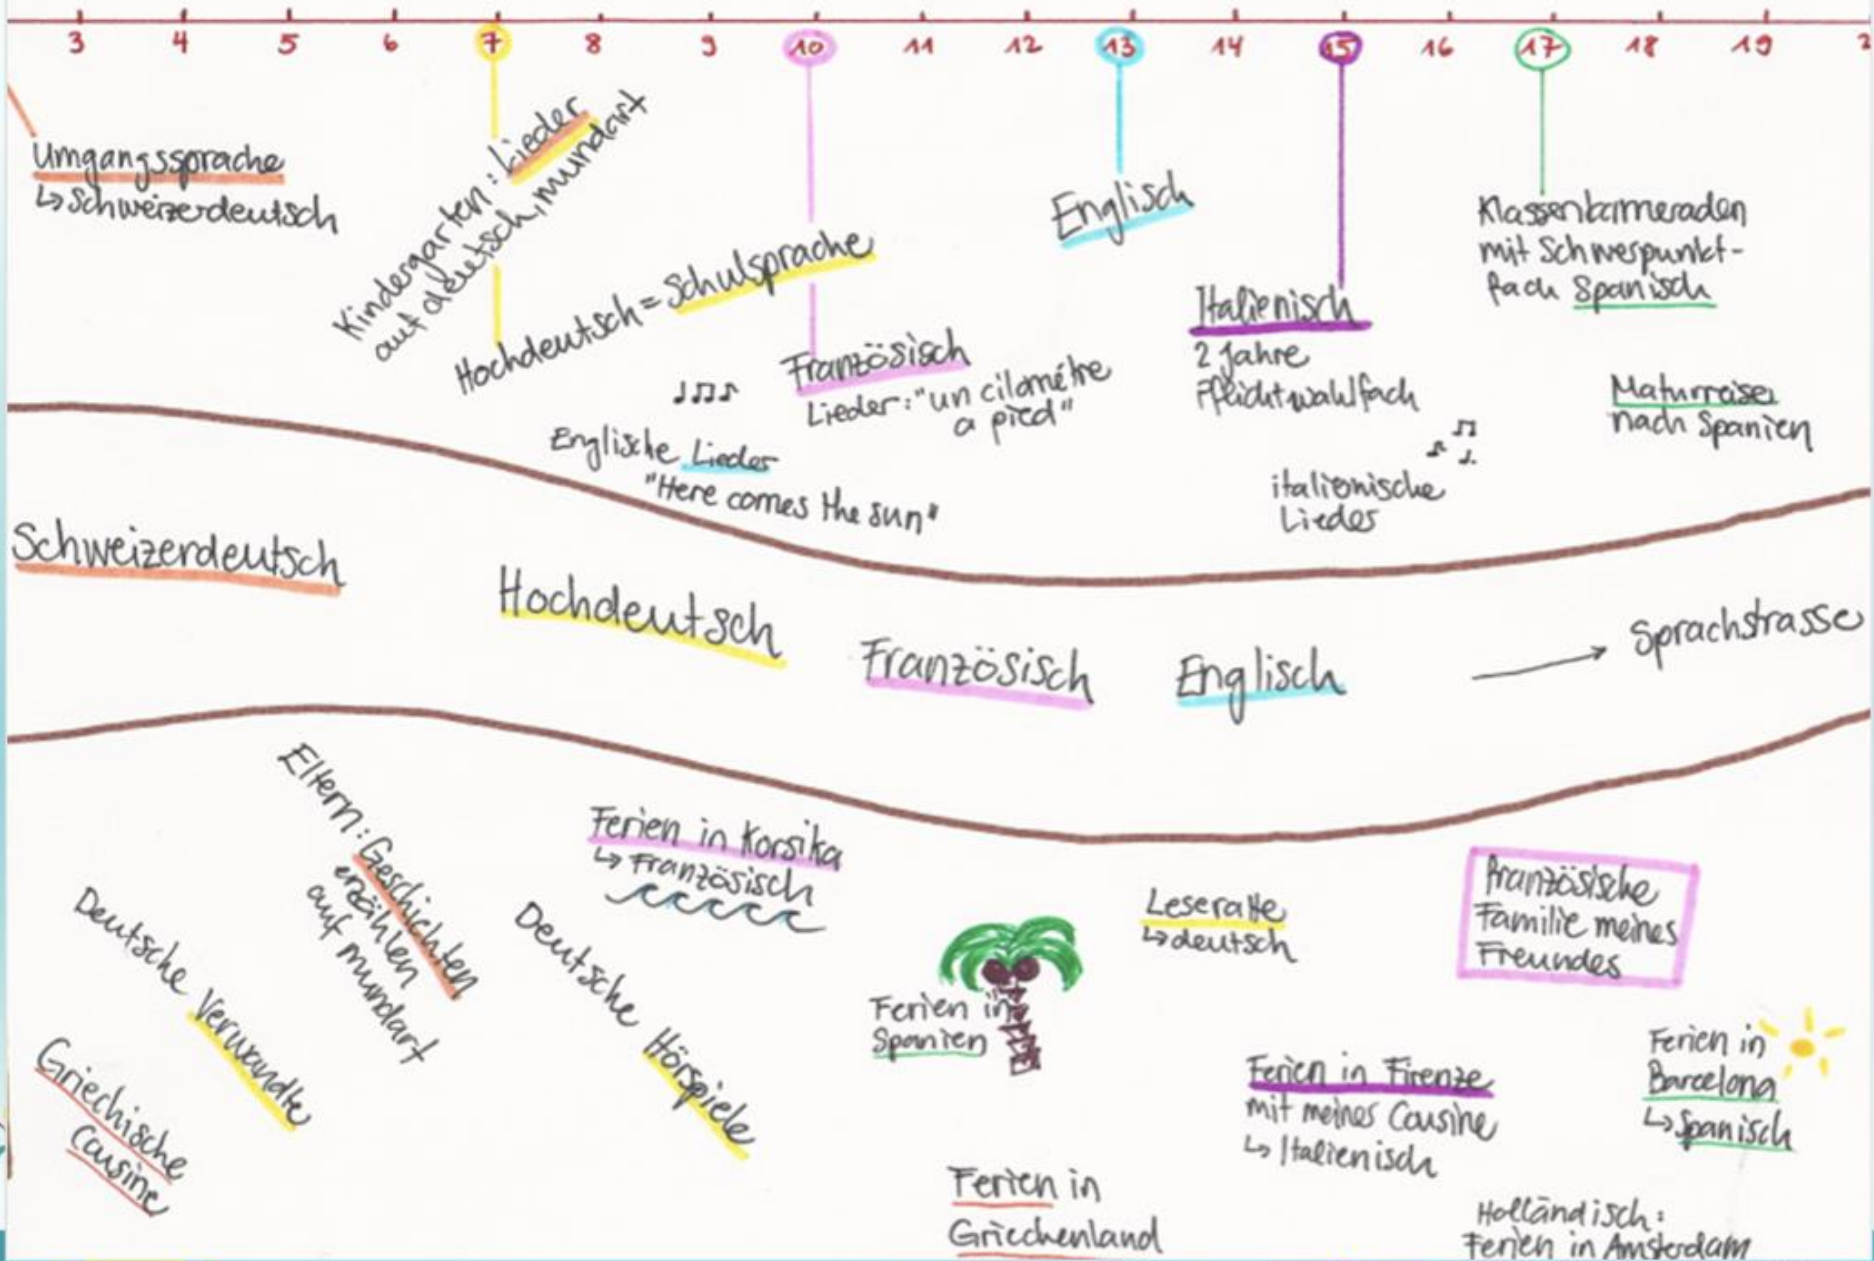 3 4 5 6 7 8 9 10 11 12 13 14 15 16 17 18 19
Umgangssprache
↳ Schweizerdeutsch
Kindergarten: Lieder
auf deutsch, mundart
Hochdeutsch = Schulsprache
Französisch
Lieder: "un cilométre
a pied"
Englische Lieder
"Here comes the sun"
Englisch
Italienisch
2 Jahre
Pflichtwahlfach
italienische
Lieder
Klassenkameraden
mit Schwerpunkt-
fach Spanisch
Maturreise
nach Spanien
Schweizerdeutsch
Hochdeutsch
Französisch
Englisch
→ Sprachstrasse
Eltern: Geschichten
erzählen
auf mundart
Deutsche Verwandte
Griechische
Cousine
Ferien in Korsika
↳ Französisch
Deutsche Hörspiele
Ferien in
Spanien
Ferien in
Griechenland
Leseratte
↳ deutsch
Ferien in Firenze
mit meines Cousine
↳ Italienisch
Französische
Familie meines
Freundes
Ferien in
Barcelona
↳ Spanisch
Holländisch:
Ferien in Amsterdam